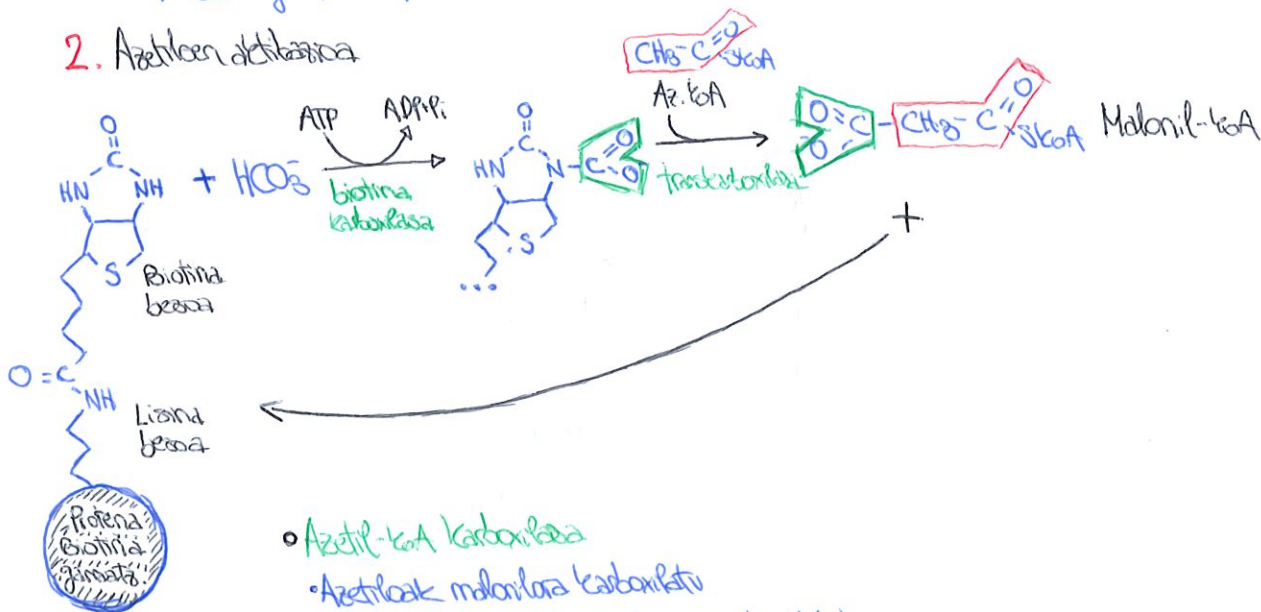 2. Azetiloen aktibazioa
CH3-C=O
SKoA
ATP
ADP+Pi
Az. KoA
O
C
HN
NH
+ HCO3-
biotina
karboxilasa
O
C
HN
N-C
O
O
S
...
transkarboxilasa
O=C-CH3-C=O
O-
SKoA
Malonil-KoA
+
S
Biotina
besoa
O=C
NH
Lisina
besoa
Proteina
Biotina
garraiatz.
Azetil-KoA karboxilasa
Azetiloak malonilora karboxilatu